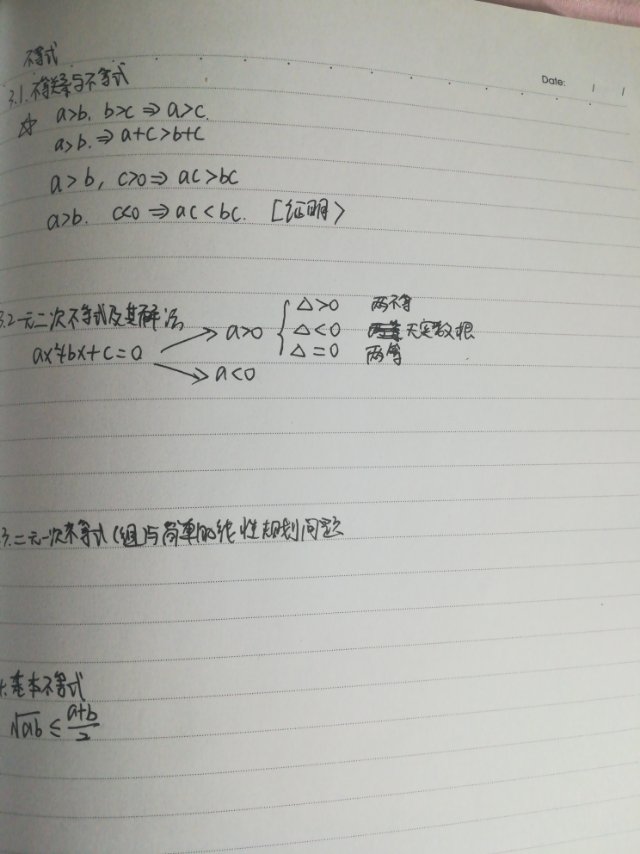 不等式
Date: / /
3.1.不等关系与不等式
☆ a>b, b>c ⇒ a>c.
a>b. ⇒ a+c>b+c
a>b, c>0 ⇒ ac>bc
a>b. c<0 ⇒ ac<bc. [证明>
3.2一元二次不等式及其解法
ax²+bx+c=0
a>0
△>0 两不等
△<0 无实数根
△=0 两等
a<0
3.二元一次不等式(组)与简单的线性规划问题
4.基本不等式
√ab ≤ a+b/2